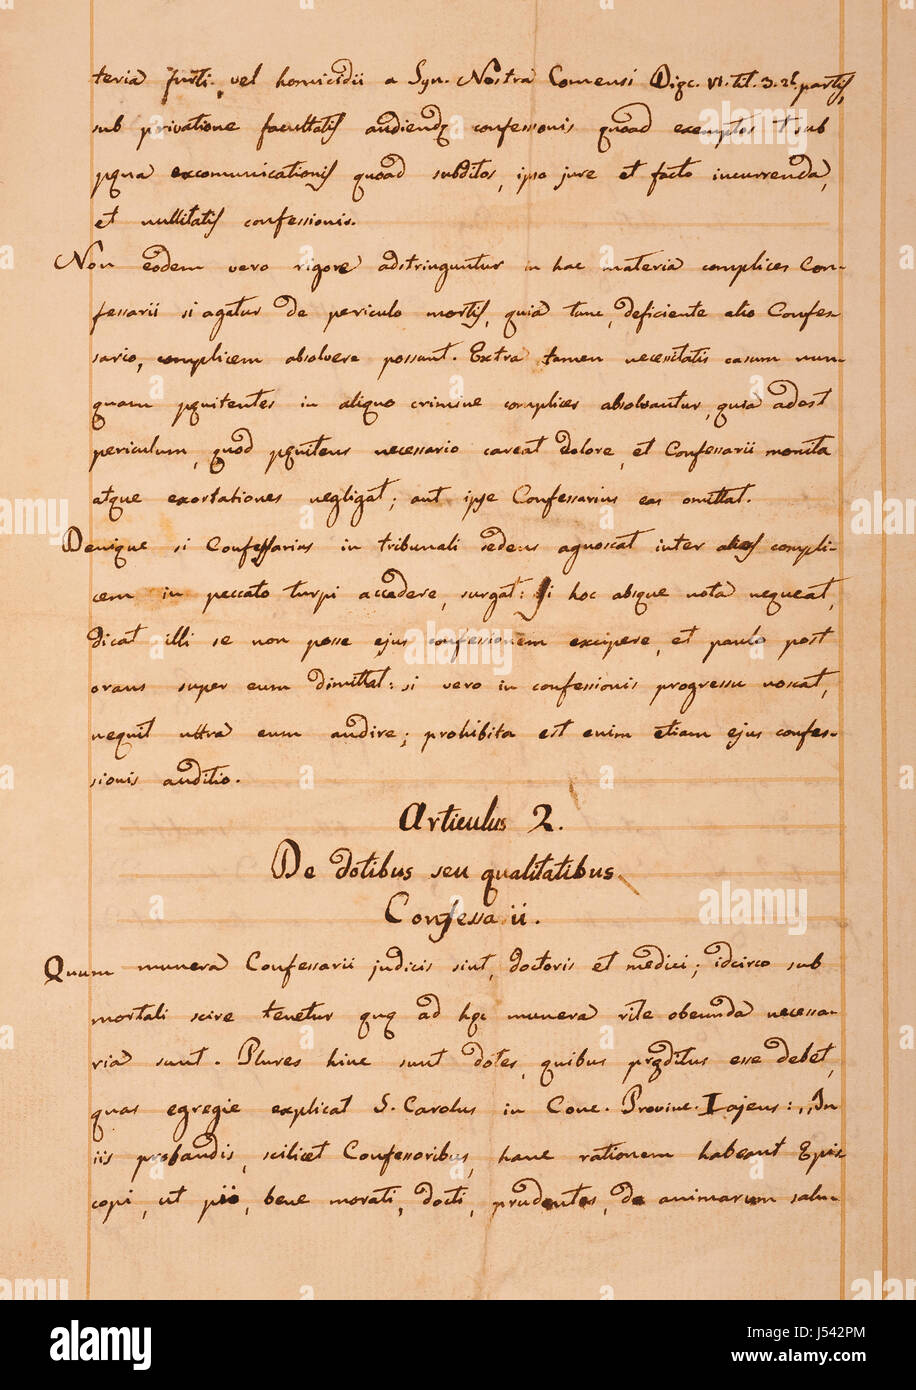 teria furti, vel homicidii a Syn. Nostra Comensi Diœc. VI. tit. 3. 2æ partis,
sub privatione facultatis audiendę confessionis quoad exemptos t sub
pęna excomunicationis quoad subditos, ipso jure et facto incurrenda,
et nullitatis confessionis.
Non eodem vero rigore adstringuntur in hac materia complices Con-
fessarii si agatur de periculo mortis, quia tunc, deficiente alio Confes-
sario, complicem absolvere possunt. Extra tamen necesitatis casum num-
quam pęnitentes in aliquo crimine complices absolvantur, quia adest
periculum, quod pęnitens necessario careat dolore, et Confessarii monita
atque exortationes negligat; aut ipse Confessarius eas omittat.
Denique si Confessarius in tribunali sedens agnoscat inter alios compli-
cem in peccato turpi accedere, surgat: si hoc absque nota nequeat,
dicat illi se non posse ejus confessionem excipere, et paulo post
orans super eum dimittat: si vero in confessionis progressu noscat,
nequit ultra eum audire; prohibita est enim etiam ejus confes-
sionis auditio.
Articulus 2.
De dotibus seu qualitatibus
Confessarii.
Quum munera Confessarii judicis sint, doctoris et medici; idcirco sub
mortali scire tenetur quę ad hęc munera rite obeunda necessa-
ria sunt. Plures hinc sunt dotes, quibus pręditus esse debet,
quas egregie explicat S. Carolus in Conc. Provinc. I ajens: „In
iis probandis, scilicet Confessoribus, hanc rationem habeant Epis-
copi, ut pii, bene morati, docti, prudentes, de animarum salu-
alamy
J542PM
www.alamy.com